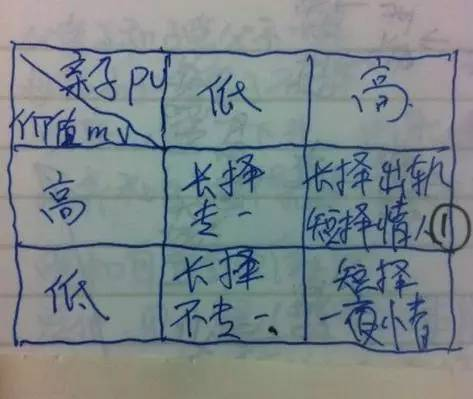 亲子PU
价值mv
低
高
高
长择
专一
长择出轨
短择情人①
低
长择
不专一、
短择
一夜情